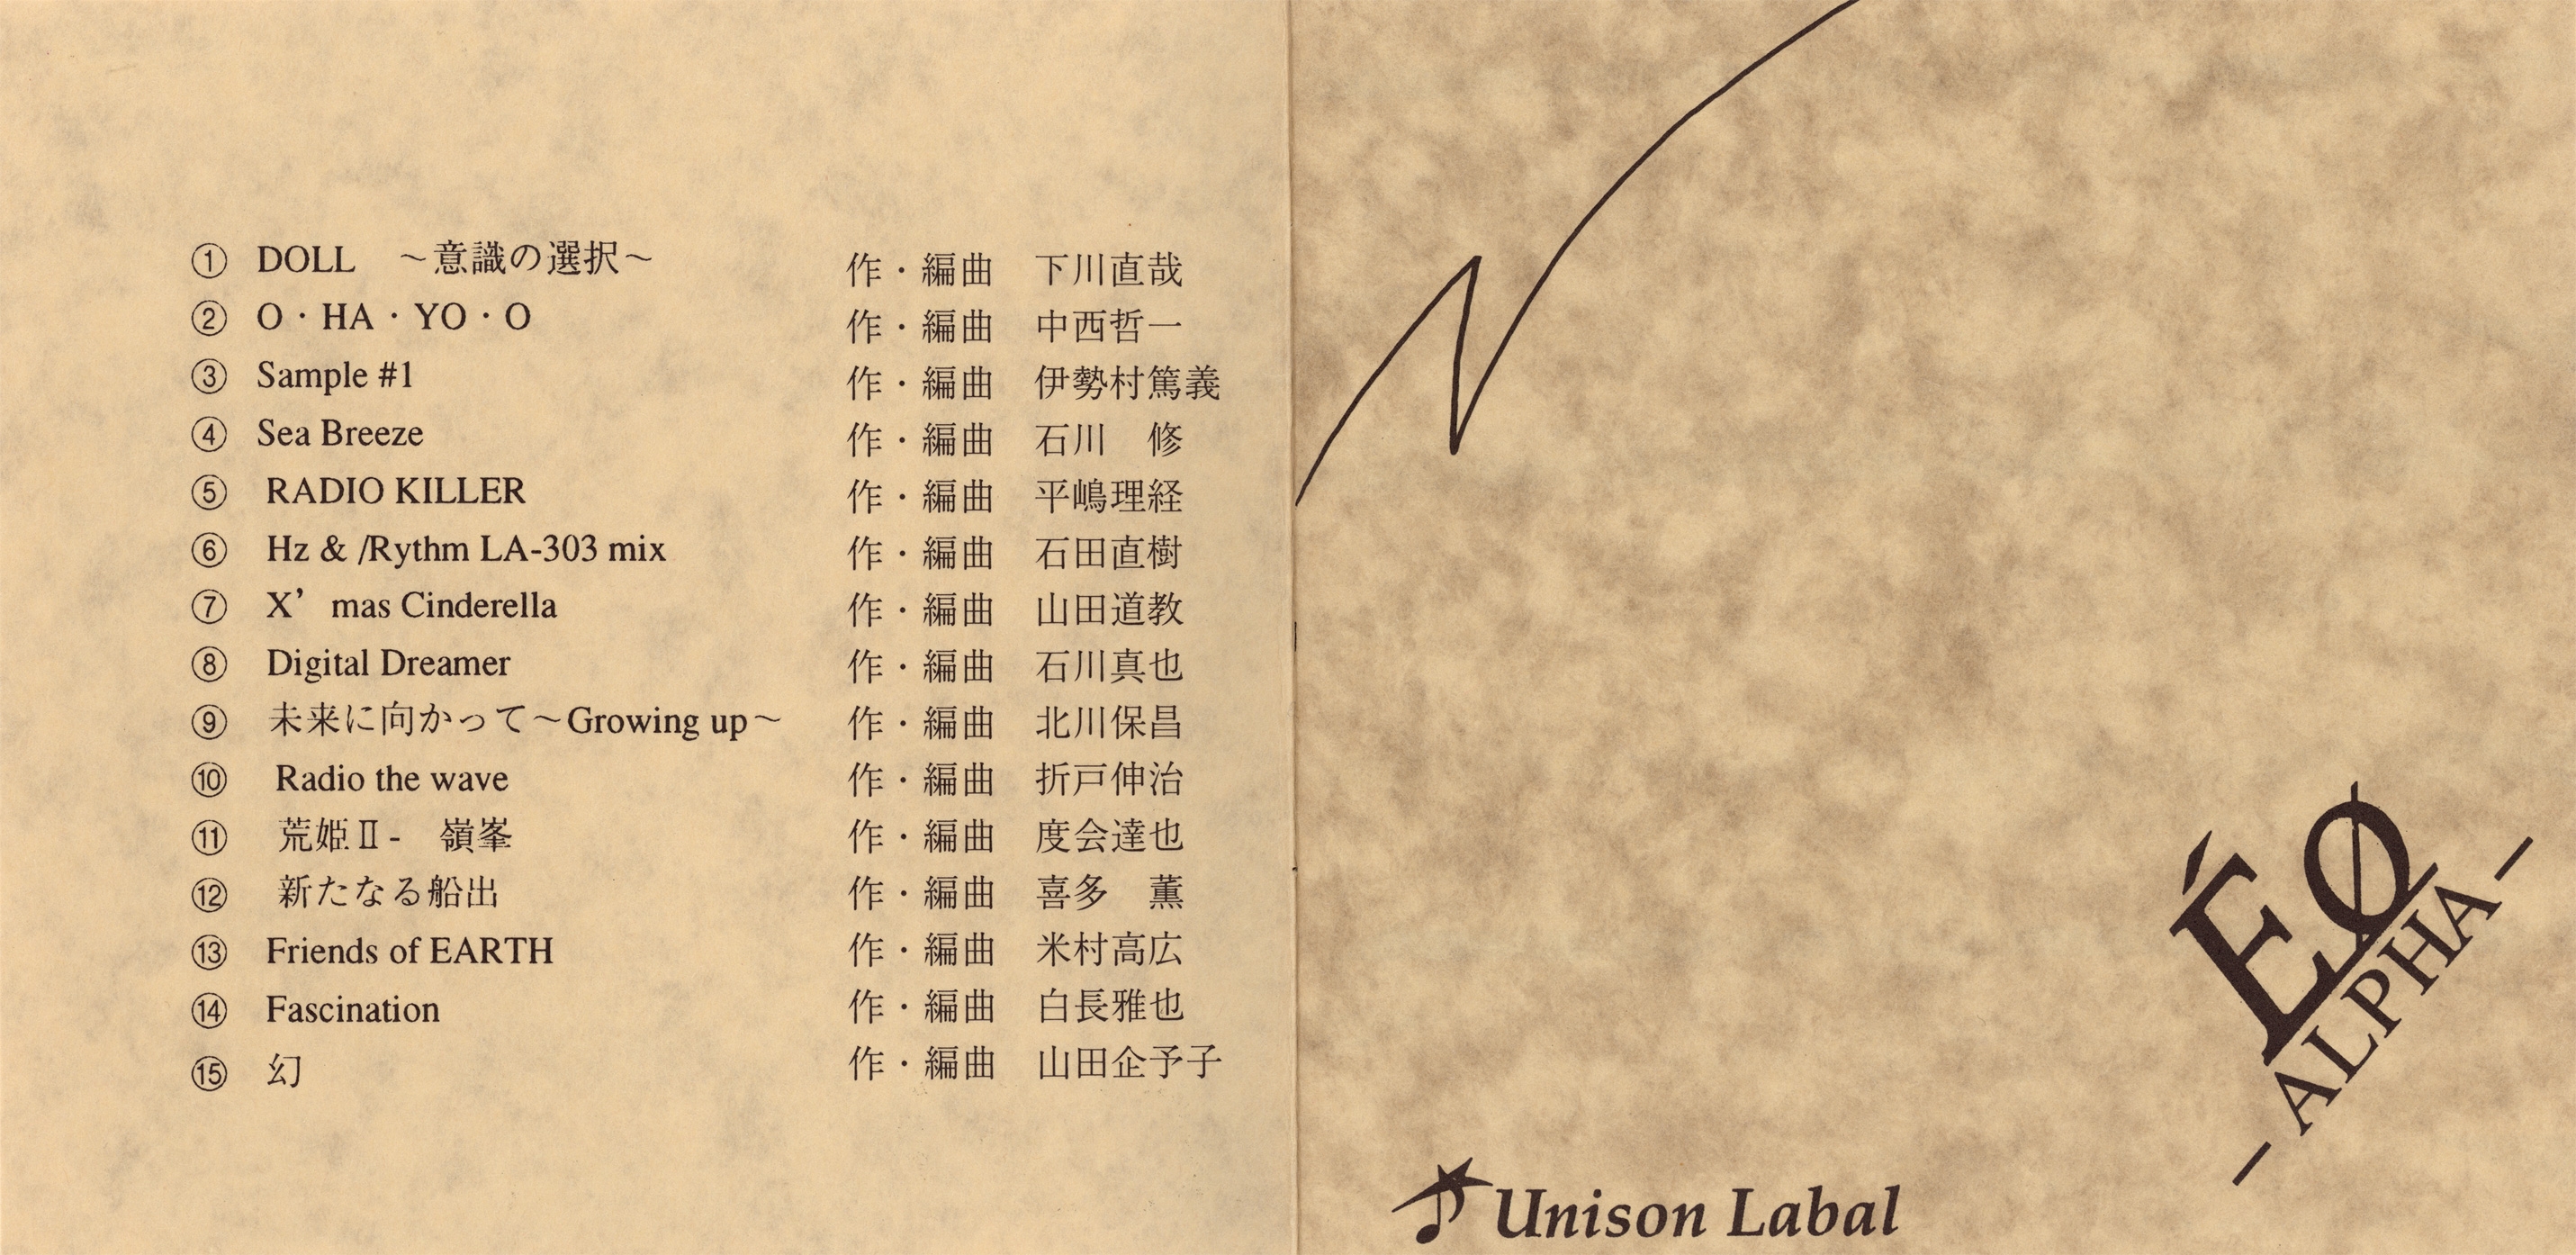 ① DOLL　～意識の選択～　作・編曲　下川直哉
② O・HA・YO・O　作・編曲　中西哲一
③ Sample #1　作・編曲　伊勢村篤義
④ Sea Breeze　作・編曲　石川　修
⑤ RADIO KILLER　作・編曲　平嶋理経
⑥ Hz & /Rythm LA-303 mix　作・編曲　石田直樹
⑦ X’mas Cinderella　作・編曲　山田道教
⑧ Digital Dreamer　作・編曲　石川真也
⑨ 未来に向かって～Growing up～　作・編曲　北川保昌
⑩ Radio the wave　作・編曲　折戸伸治
⑪ 荒姫Ⅱ-　嶺峯　作・編曲　度会達也
⑫ 新たなる船出　作・編曲　喜多　薫
⑬ Friends of EARTH　作・編曲　米村高広
⑭ Fascination　作・編曲　白長雅也
⑮ 幻　作・編曲　山田企予子
ÉØ
－ALPHA－
Unison Labal